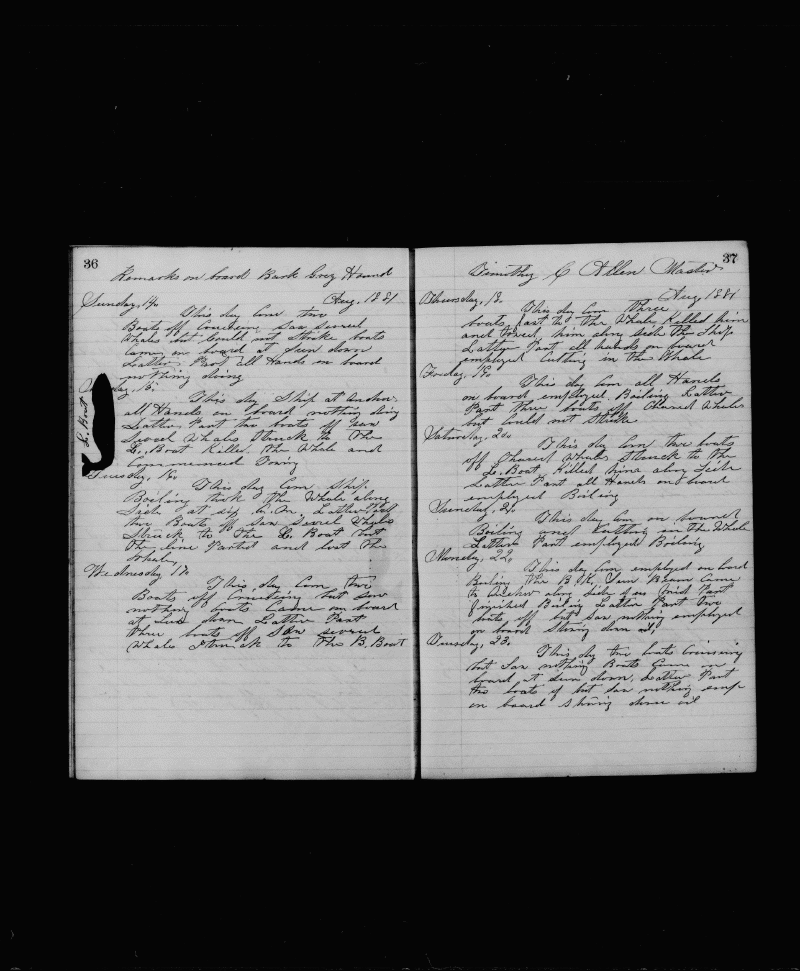 36
Remarks on board Bark Grey Hound
Sunday, 14. Aug, 1881
This day Com two
Boats off Cruising saw several
Whales but Could not Strike boats
Came on board at Sun down
Latter Part all Hands on board
nothing doing
day, 15.
L. Boat
This day Ship at Anchor
all Hands on board nothing doing
Latter Part two boats off saw
Several Whales Struck to the
L. Boat Killed the Whale and
Commenced Towing
Tuesday, 16.
This day Com Ship
Boiling took the Whale along
Side at six A. M. Latter Part
two Boats off saw several Whales
Struck to the L. Boat but
the line Parted and lost the
Whale,
Wednesday 17.
This day Com two
Boats off Cruising but saw
nothing boats Came on board
at Sun down Latter Part
three boats off saw several
Whales Struck to the B. Boat
37
Timothy C Allen Master
Thursday, 18. Aug 1881
This day Com Three
boats fast to the Whale, Killed him
and towed him along Side the Ship
Latter Part all hands on board
employed Cutting in the Whale
Friday, 19.
This day Com all Hands
on board employed Boiling Latter
Part three boats off Chased Whales
but Could not Strike
Saturday, 20.
This day Com two boats
off Chased Whales Struck to the
L. Boat, Killed him along Side
Latter Part all Hands on board
employed Boiling
Sunday, 21.
This day Com on board
Boiling and Cutting in the Whale
Latter Part employed Boiling
Monday, 22.
This day Com employed on board
Boiling the B.K. Came
to Anchor along side of us Mid Part
finished Boiling Latter Part two
boats off but saw nothing employed
on board Stowing down oil,
Tuesday, 23.
This day two boats Cruising
but saw nothing Boats Came on
board at Sun down, Latter Part
two boats off but saw nothing emp
on board stowing down oil